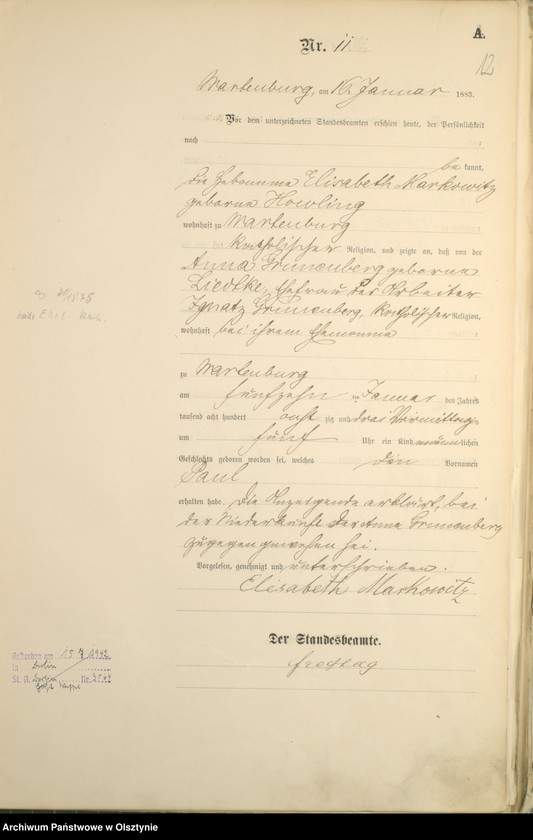 A.
12
Nr. 11
Wartenburg, am 16 Januar 1883.
Vor dem unterzeichneten Standesbeamten erschien heute, der Persönlichkeit
nach
be kannt,
die Hebamme Elisabeth Markowitz
geborne Howling
wohnhaft zu Wartenburg
katholischer Religion, und zeigte an, daß von der
Anna Grunenberg geborne
Liedtke, Ehefrau des Arbeiter
Ignatz Grunenberg, katholischer Religion,
wohnhaft bei ihrem Ehemanne
zu Wartenburg
am fünfzehn ten Januar des Jahres
tausend acht hundert acht zig und drei Vormittags
um fünf Uhr ein Kind männlichen
Geschlechts geboren worden sei, welches den Vornamen
Paul
erhalten habe. Die Anzeigende erklärt, bei
der Niederkunft der Anna Grunenberg
zugegen gewesen sei.
Vorgelesen, genehmigt und unterschrieben.
Elisabeth Markowitz
Der Standesbeamte.
Freytag
Gestorben am 15.7.1942
in Berlin
St. A. Berlin Nr.
Archiwum Państwowe w Olsztynie